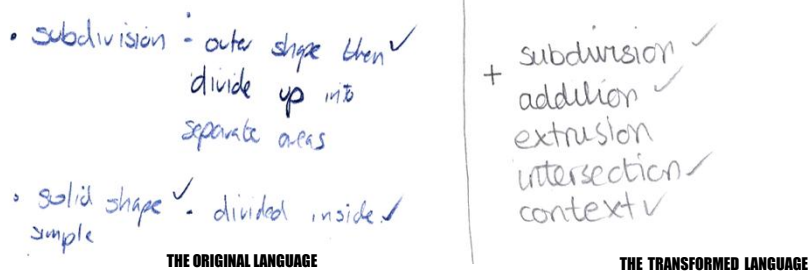 • subdivision - outer shape then ✓
divide up into
separate areas
• solid shape ✓ - divided inside ✓
simple
THE ORIGINAL LANGUAGE
+ subdivision ✓
addition ✓
extrusion
intersection ✓
context ✓
THE TRANSFORMED LANGUAGE